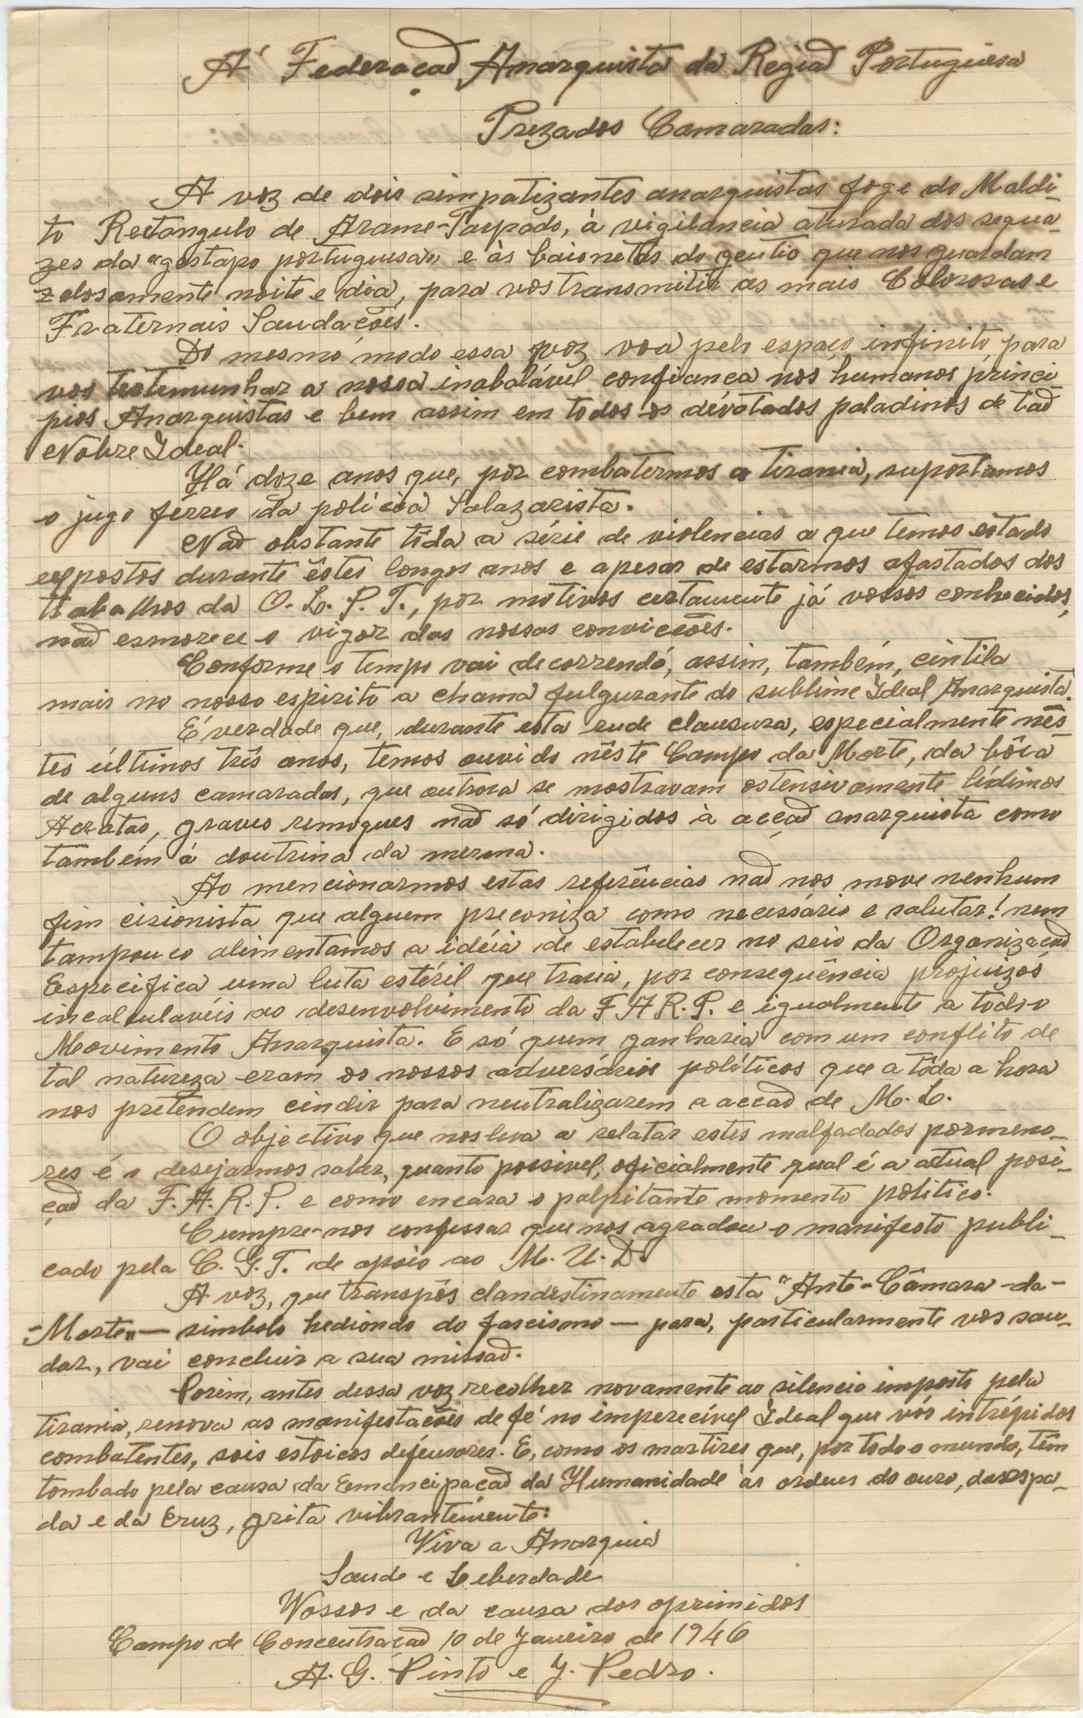 Á Federação Anarquista da Região Portuguêsa
Prezados Camaradas:
A voz de dois simpatizantes anarquistas foge do Maldi-
to Rectangulo de Arame-Farpado, à vigilancia aturada dos sequa-
zes da "gestapo portuguesa" e às baionetas do gentio que nos guardam
zelosamente noite e dia, para vos transmitir as mais Calorosas e
Fraternais Saudações.
Do mesmo modo essa voz voa pelo espaço infinito para
vos testemunhar a nossa inabalável confiança nos humanos princi
pios Anarquistas e bem assim em todos os devotados paladinos de tão
Nobre Ideal.
Há doze anos que, por combatermos a tirania, suportamos
o jugo férreo da policia Salazarista.
Não obstante tôda a série de violencias a que temos estado
expostos durante êstes longos anos e apesar de estarmos afastados dos
trabalhos da O. L. P. T., por motivos certamente já vossos conhecidos,
não esmorece o vigor das nossas convicções.
Conforme o tempo vai decorrendo, assim, também, cintila
mais no nosso espirito a chama fulgurante do sublime Ideal Anarquista.
É verdade que, durante esta rude clausura, especialmente nês-
tes últimos três anos, temos ouvido nêste Campo da Morte, da bôca
de alguns camaradas, que outrora se mostravam ostensivamente lídimos
Acratas, graves remoques não só dirigidos à acção anarquista como
também á doutrina da mesma.
Ao mencionarmos estas referências não nos move nenhum
fim cisionista que alguem preconiza como necessário e salutar! nem
tampouco alimentamos a idéia de estabelecer no seio da Organização
Especifica uma luta estéril que traria, por consequência projuizos
incalculavéis ao desenvolvimento da F.A.R.P. e igualmente a todo o
Movimento Anarquista. E só quem ganharia com um conflito de
tal natureza eram os nossos adversários politicos que a tôda a hora
nos pretendem cindir para neutralizarem a acção de M. L.
O objectivo que nos leva a relatar estes malfadados pormeno-
res é o desejarmos saber, quanto possivel, oficialmente qual é a actual posi-
ção da F.A.R.P. e como encara o palpitante momento politico.
Cumpre-nos confessar que nos agradou o manifesto publi-
cado pela C. G. T. de apoio ao M. U. D.
A voz, que transpôs clandestinamente esta "Ante-Câmara-da-
-Morte" — simbolo hediondo do fascismo — para, particularmente vos sau-
dar, vai concluir a sua missão.
Porém, antes dessa voz recolher novamente ao silencio imposto pela
tirania, renova as manifestações de fé no imperecível Ideal que vós intrépidos
combatentes, sois estoicos defensores. E, como os martires que, por todo o mundo, têm
tombado pela causa da Emancipação da Humanidade às ordens do ouro, da espa-
da e da Cruz, grita vibrantemente:
Viva a Anarquia
Saude e Leberdade
Vossos e da causa dos oprimidos
Campo de Concentração 10 de Janeiro de 1946
A. G. Pinto e J. Pedro.